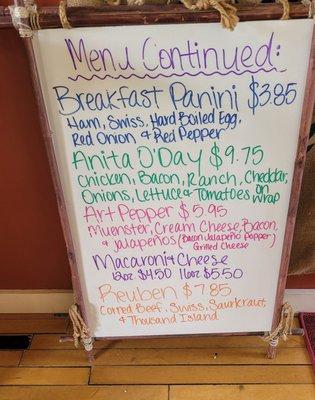 Menu Continued:
Breakfast Panini $3.85
Ham, Swiss, Hard Boiled Egg,
Red Onion & Red Pepper
Anita O'Day $9.75
Chicken, Bacon, Ranch, Cheddar,
Onions, Lettuce & Tomatoes on wrap
Art Pepper $5.95
Muenster, Cream Cheese, Bacon,
& Jalapeños (Bacon Jalapeño Popper) Grilled Cheese
Macaroni & Cheese
12oz $4.50 16oz $5.50
Reuben $7.85
Corned Beef, Swiss, Saurkraut,
& Thousand Island